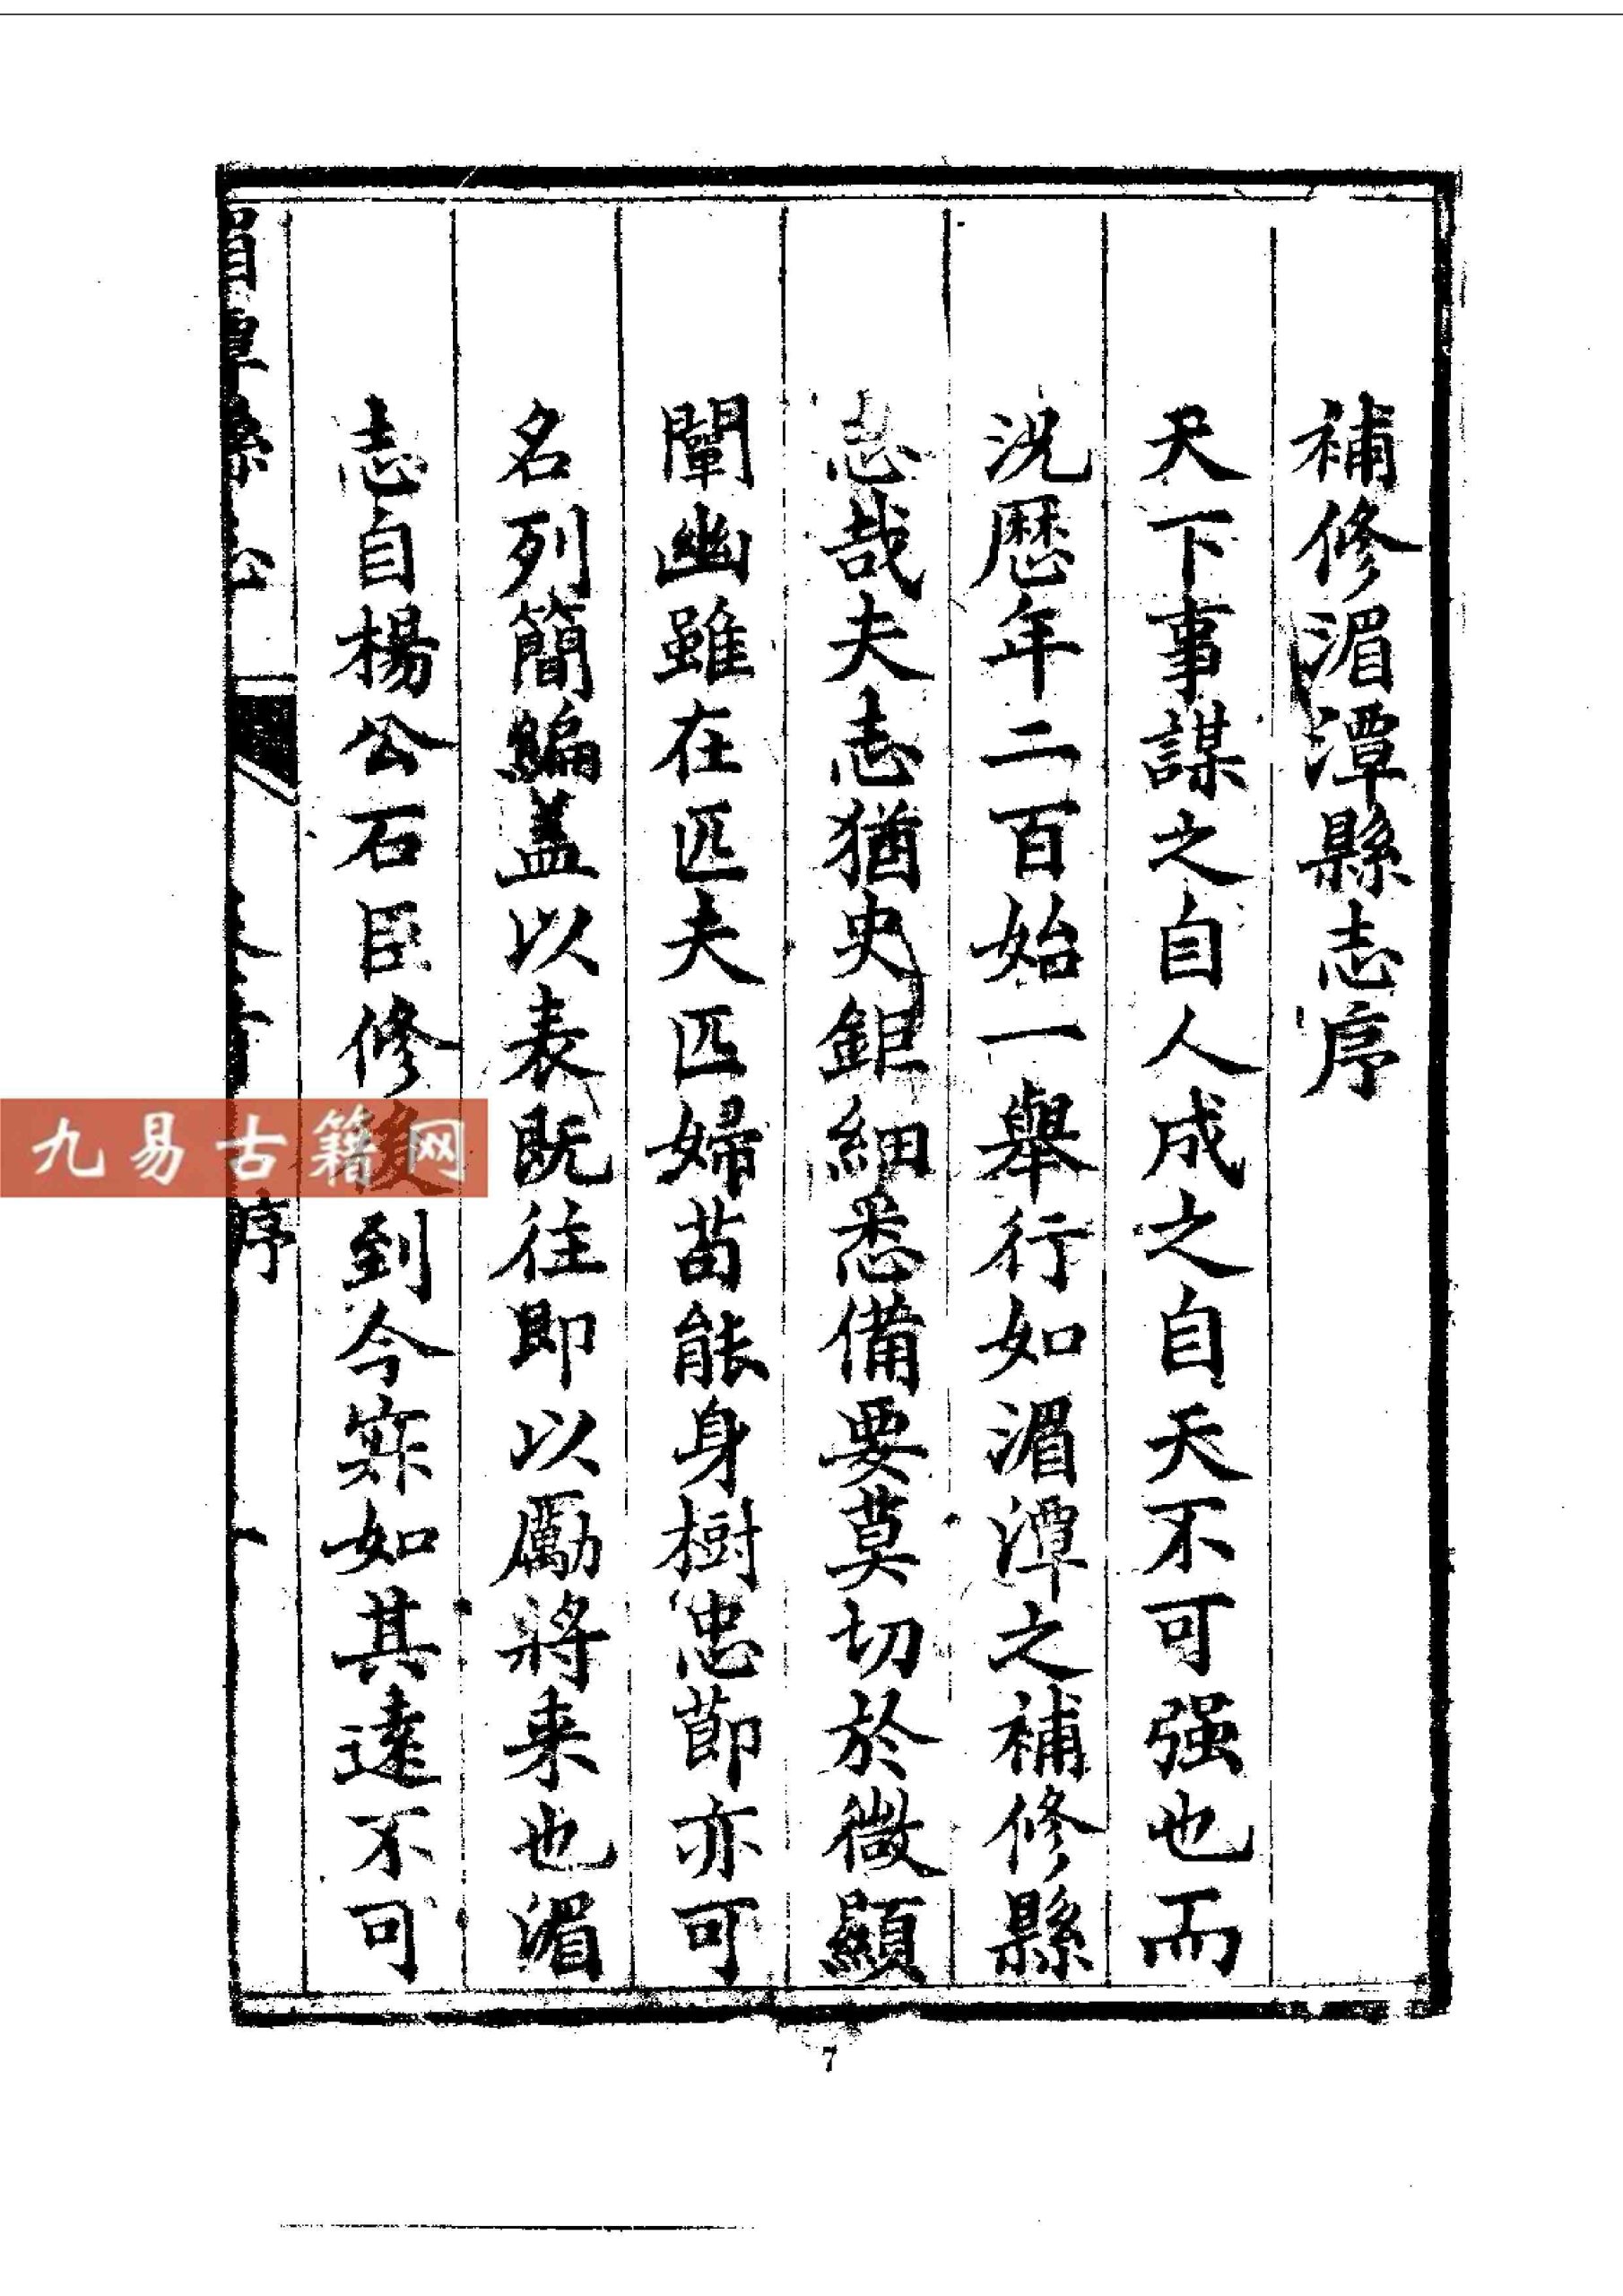 補修湄潭縣志序
天下事謀之自人成之自天不可强也而
況歷年二百始一舉行如湄潭之補修縣
志哉夫志猶史鉅細悉備要莫切於微顯
闡幽雖在匹夫匹婦苗能身樹忠節亦可
名列簡編蓋以表既往即以勵將来也湄
志自楊公石臣修後到今寐如其遠不可
湄潭縣志
卷首
序
一
九易古籍网
7